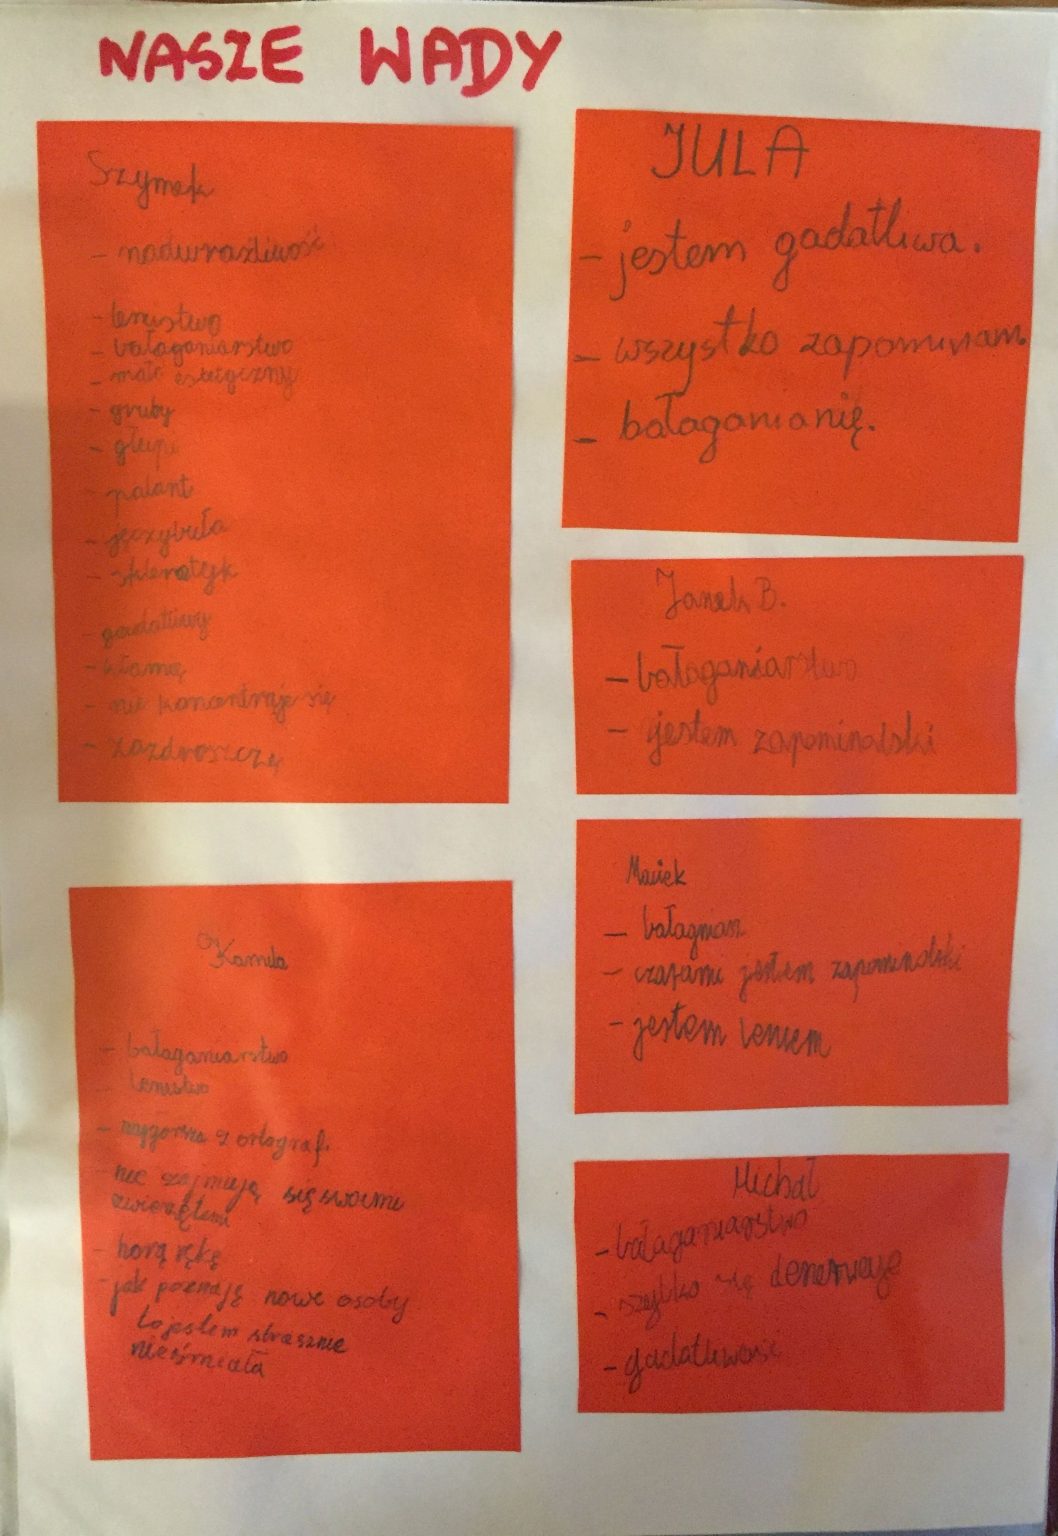 NASZE WADY
Szymek
- nadwrażliwość
- lenistwo
- bałaganiarstwo
- mało
- gruby
- głupi
- palant
- jęczybuła
- sklerotyk
- gadatliwy
- kłamę
- nie koncentruje się
- zazdroszczę
Kamila
- bałaganiarstwo
- lenistwo
- najgorsza z ortografi
- nie zajmuję się swoimi
zwierzętemi
- horą rękę
- jak poznaję nowe osoby
to jestem strasznie
nieśmiała
JULA
- jestem gadatliwa.
- wszystko zapominam
- bałaganianię.
Janek B.
- bałaganiarstwo
- jestem zapominalski
Maciek
- bałagniarz
- czasami jestem zapominalski
- jestem leniem
Michał
- bałaganiarstwo
- szybko się denerwuje
- gadatliwość